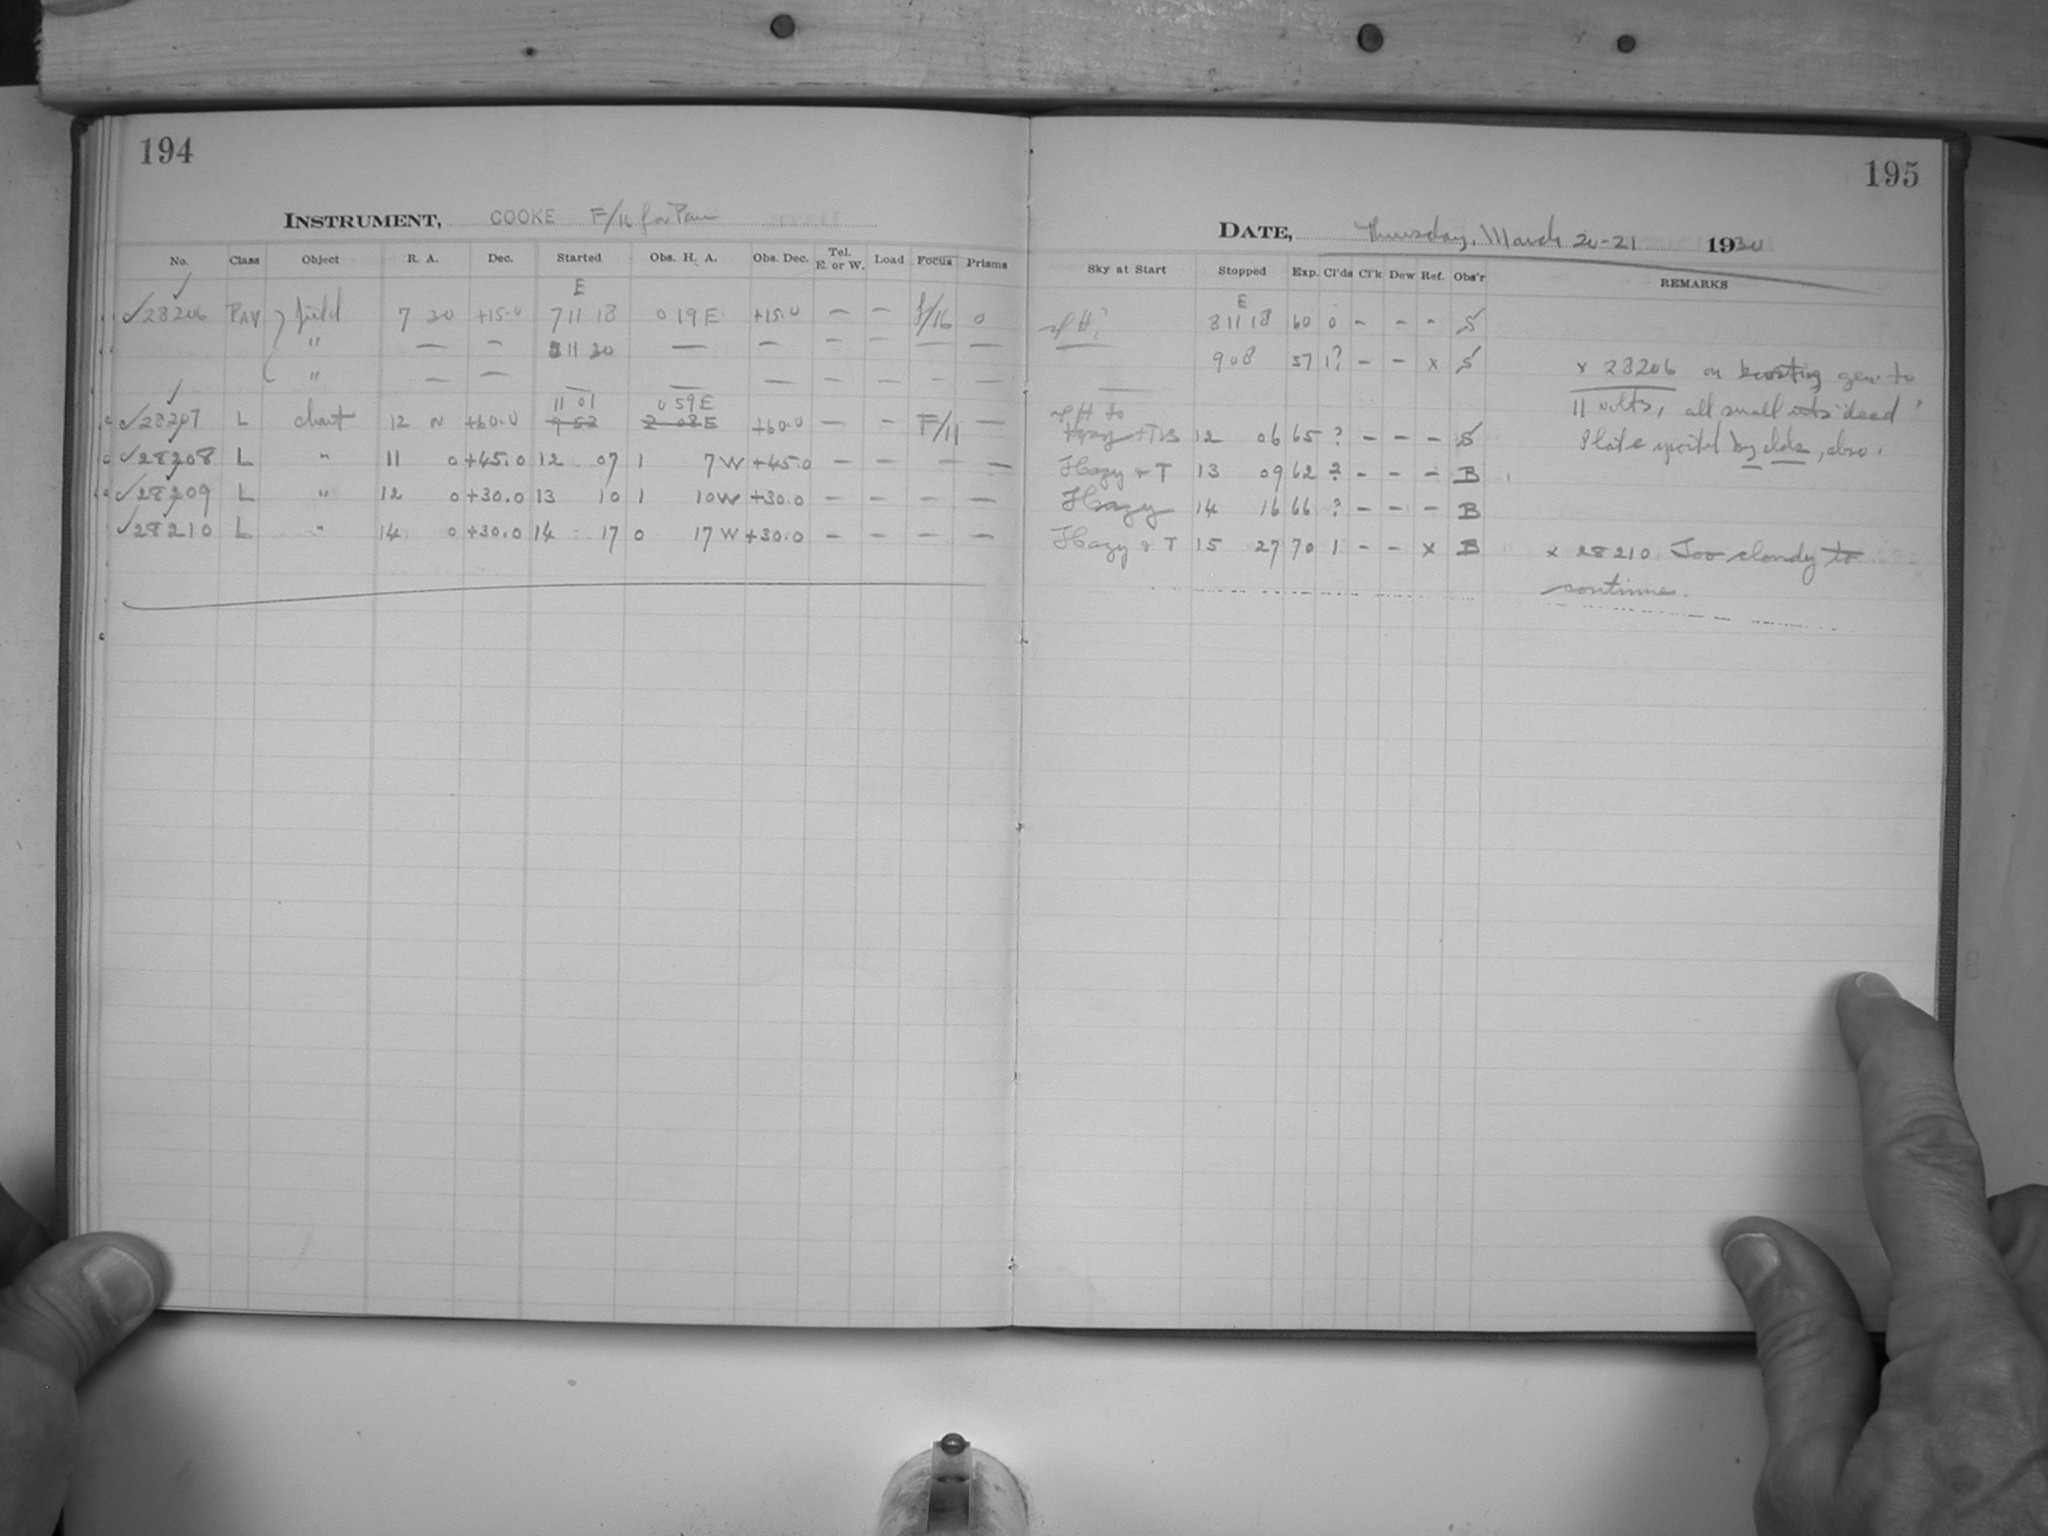 194
INSTRUMENT, COOKE F/16 for Pav
No. Class Object R. A. Dec. Started Obs. H. A. Obs. Dec. Tel. E. or W. Load Focus Prisms
E
✓28206 PAV field 7 30 +15.0 7 11 18 0 19 E +15.0 — — f/16 0
" — — 8 11 30 — — — — — —
" — — — — — — — — —
11 01 0 59 E
✓28207 L chart 12 0 +60.0 9 52 2 08 E +60.0 — — F/11 —
✓28208 L " 11 0 +45.0 12 07 1 7 W +45.0 — — — —
✓28209 L " 12 0 +30.0 13 10 1 10 W +30.0 — — — —
✓28210 L " 14 0 +30.0 14 17 0 17 W +30.0 — — — —
195
DATE, Thursday, March 20-21 1930
Sky at Start Stopped Exp. Cl'ds Cl'k Dew Ref. Obs'r REMARKS
E
8 11 18 60 0 - - - S
9 08 57 1? - - x S
x 28206 on gen to
11 volts, all small "dead"
Hazy 12 06 65 ? - - - S
Plate by clds, also.
Hazy + T 13 09 62 ? - - - B
Hazy 14 16 66 ? - - - B
Hazy + T 15 27 70 1 - - x B
x 28210 Too cloudy to
continue.